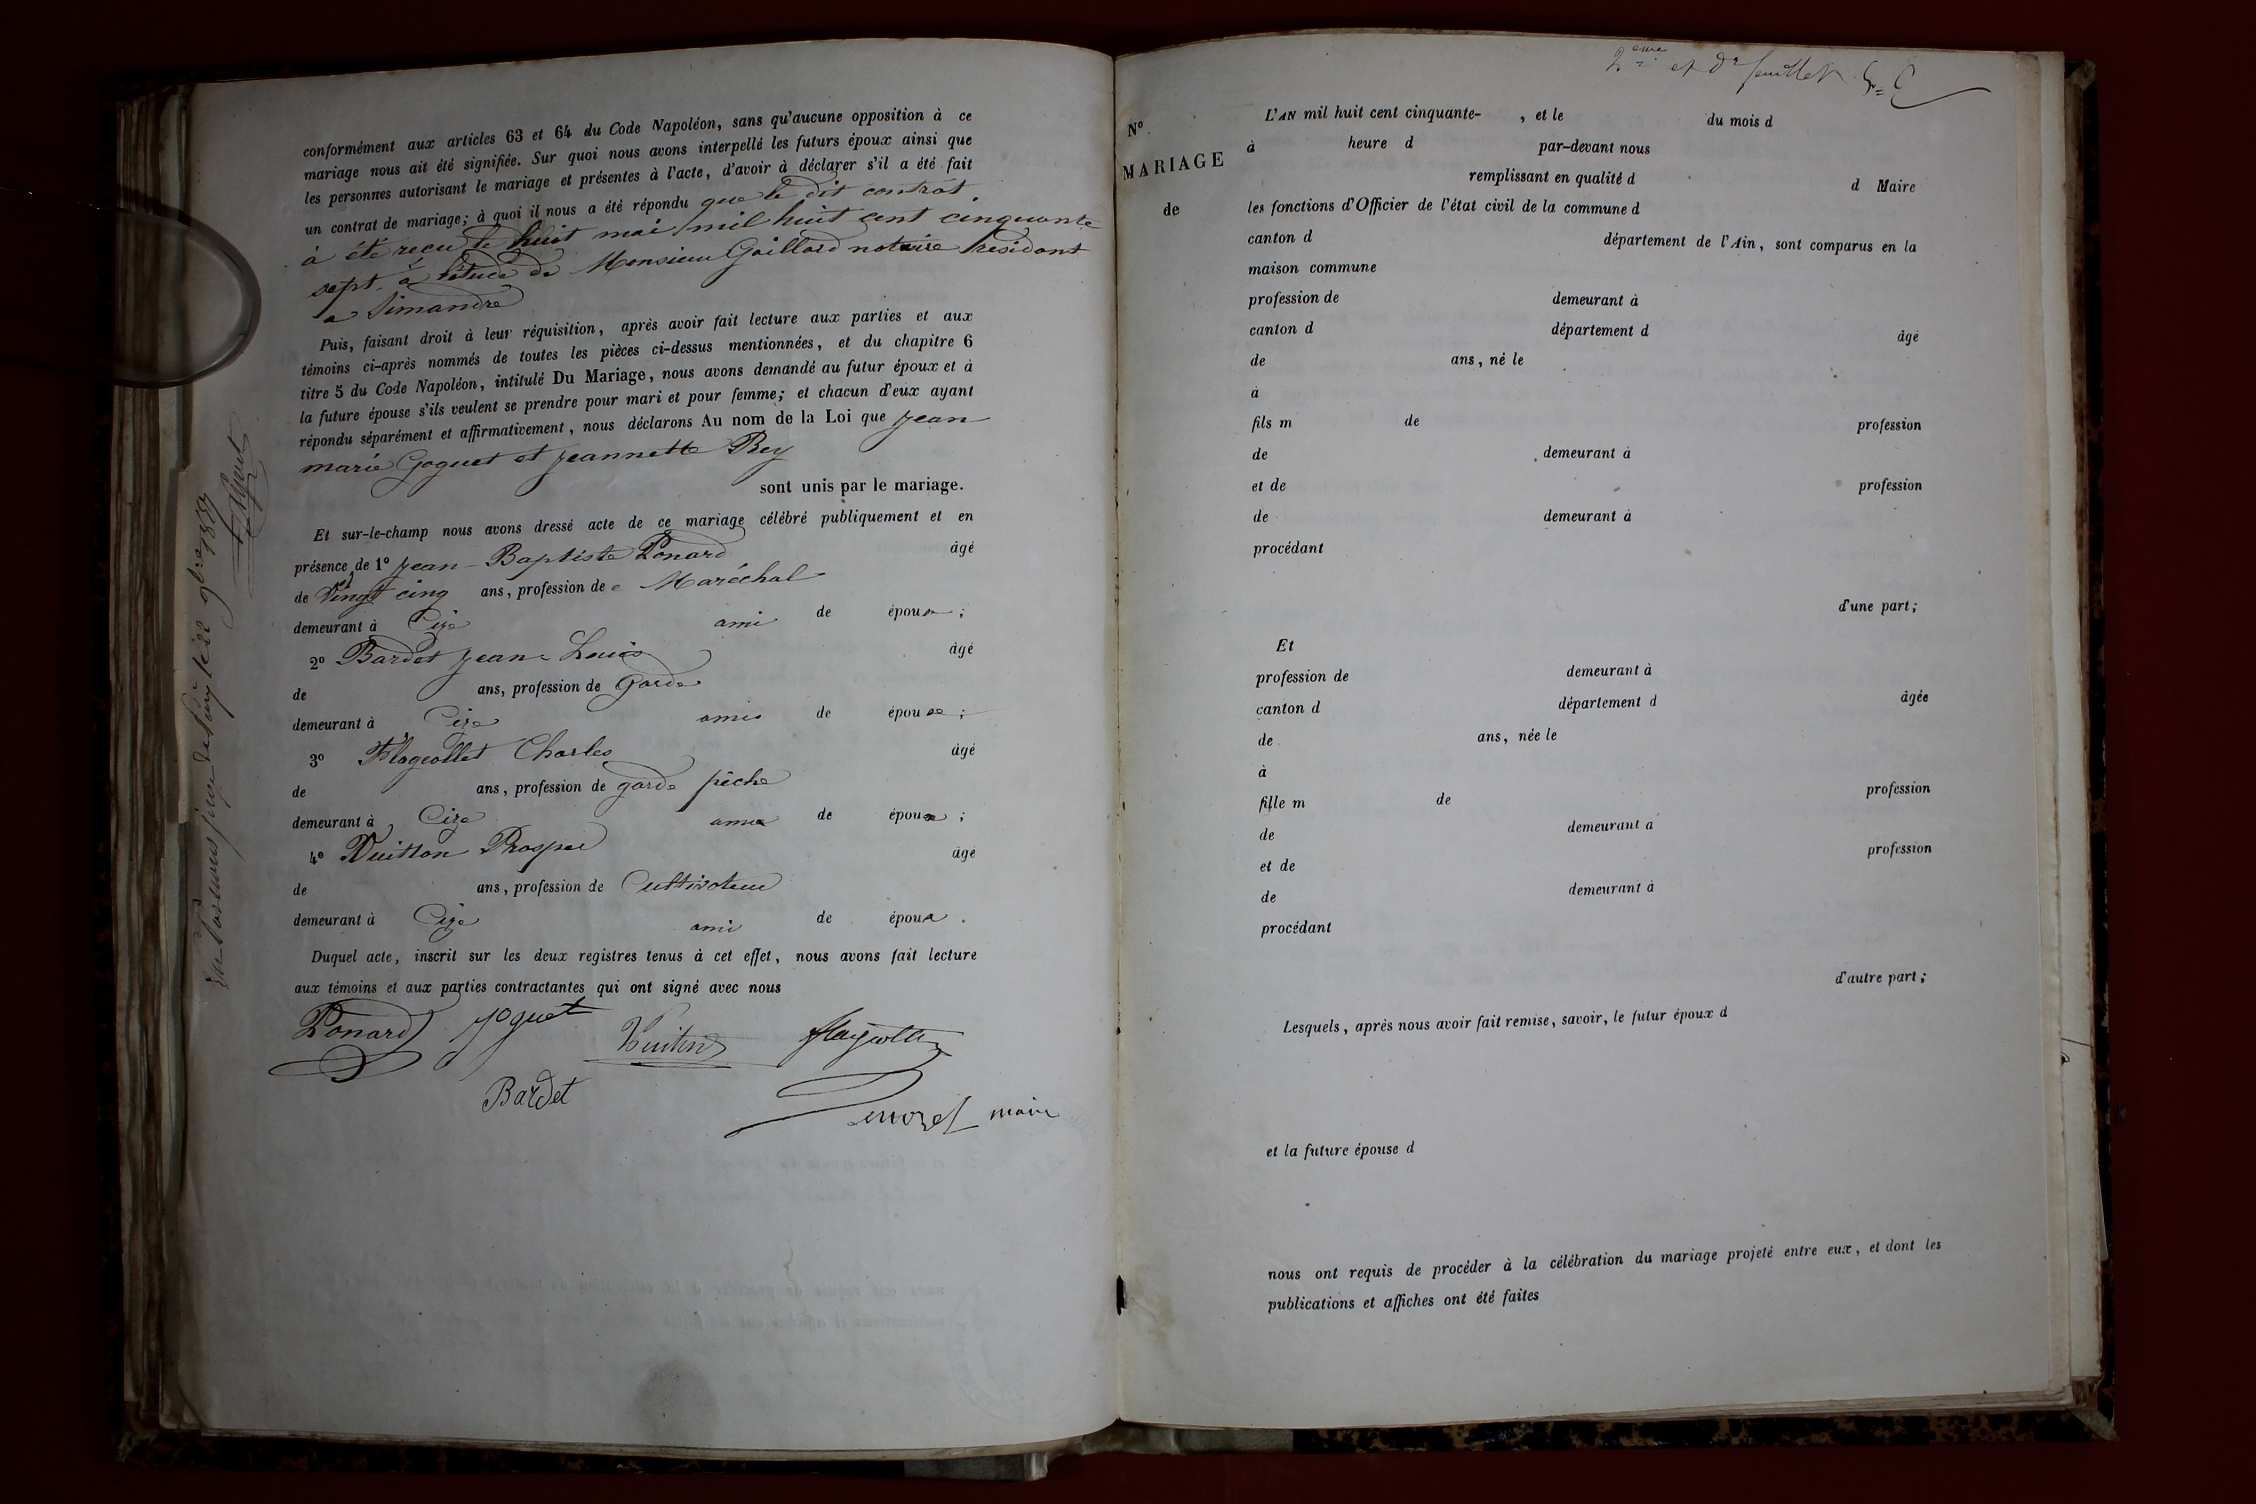 conformément aux articles 63 et 64 du Code Napoléon, sans qu'aucune opposition à ce
mariage nous ait été signifiée. Sur quoi nous avons interpellé les futurs époux ainsi que
les personnes autorisant le mariage et présentes à l'acte, d'avoir à déclarer s'il a été fait
un contrat de mariage; à quoi il nous a été répondu que le dit contrat
à été reçu le huit mai mil huit cent cinquante
sept. à l'étude de Monsieur Gaillard notaire résidant
a Simandre
Puis, faisant droit à leur réquisition, après avoir fait lecture aux parties et aux
témoins ci-après nommés de toutes les pièces ci-dessus mentionnées, et du chapitre 6
titre 5 du Code Napoléon, intitulé Du Mariage, nous avons demandé au futur époux et à
la future épouse s'ils veulent se prendre pour mari et pour femme; et chacun d'eux ayant
répondu séparément et affirmativement, nous déclarons Au nom de la Loi que jean
marie Goguet et jeannette Rey
sont unis par le mariage.
Et sur-le-champ nous avons dressé acte de ce mariage célébré publiquement et en
présence de 1° jean-Baptiste Ponard âgé
de Vingt cinq ans, profession de Maréchal
demeurant à Cize ami de époux;
2° Bardet jean-Louis âgé
de ans, profession de Garde
demeurant à Cize amis de époux;
3° Flageollet Charles âgé
de ans, profession de garde pêche
demeurant à Cize ami de époux;
4° Vuitton Prosper âgé
de ans, profession de Cultivateur
demeurant à Cize ami de époux.
Duquel acte, inscrit sur les deux registres tenus à cet effet, nous avons fait lecture
aux témoins et aux parties contractantes qui ont signé avec nous
Ponard Joguet Vuiton flageollet
Bardet
maire
2ème et dr feuillet
N°
MARIAGE
de
L'AN mil huit cent cinquante- , et le du mois d
à heure d par-devant nous
remplissant en qualité d d Maire
les fonctions d'Officier de l'état civil de la commune d
canton d département de l'Ain, sont comparus en la
maison commune
profession de demeurant à
canton d département d âgé
de ans, né le
à
fils m de profession
de demeurant à
et de profession
de demeurant à
procédant
d'une part;
Et
profession de demeurant à
canton d département d âgée
de ans, née le
à
fille m de profession
de demeurant à
et de profession
de demeurant à
procédant
d'autre part;
Lesquels, après nous avoir fait remise, savoir, le futur époux d
et la future épouse d
nous ont requis de procéder à la célébration du mariage projeté entre eux, et dont les
publications et affiches ont été faites